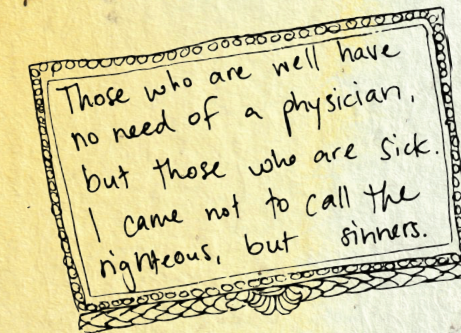 Those who are well have
no need of a physician,
but those who are sick.
I came not to call the
righteous, but sinners.